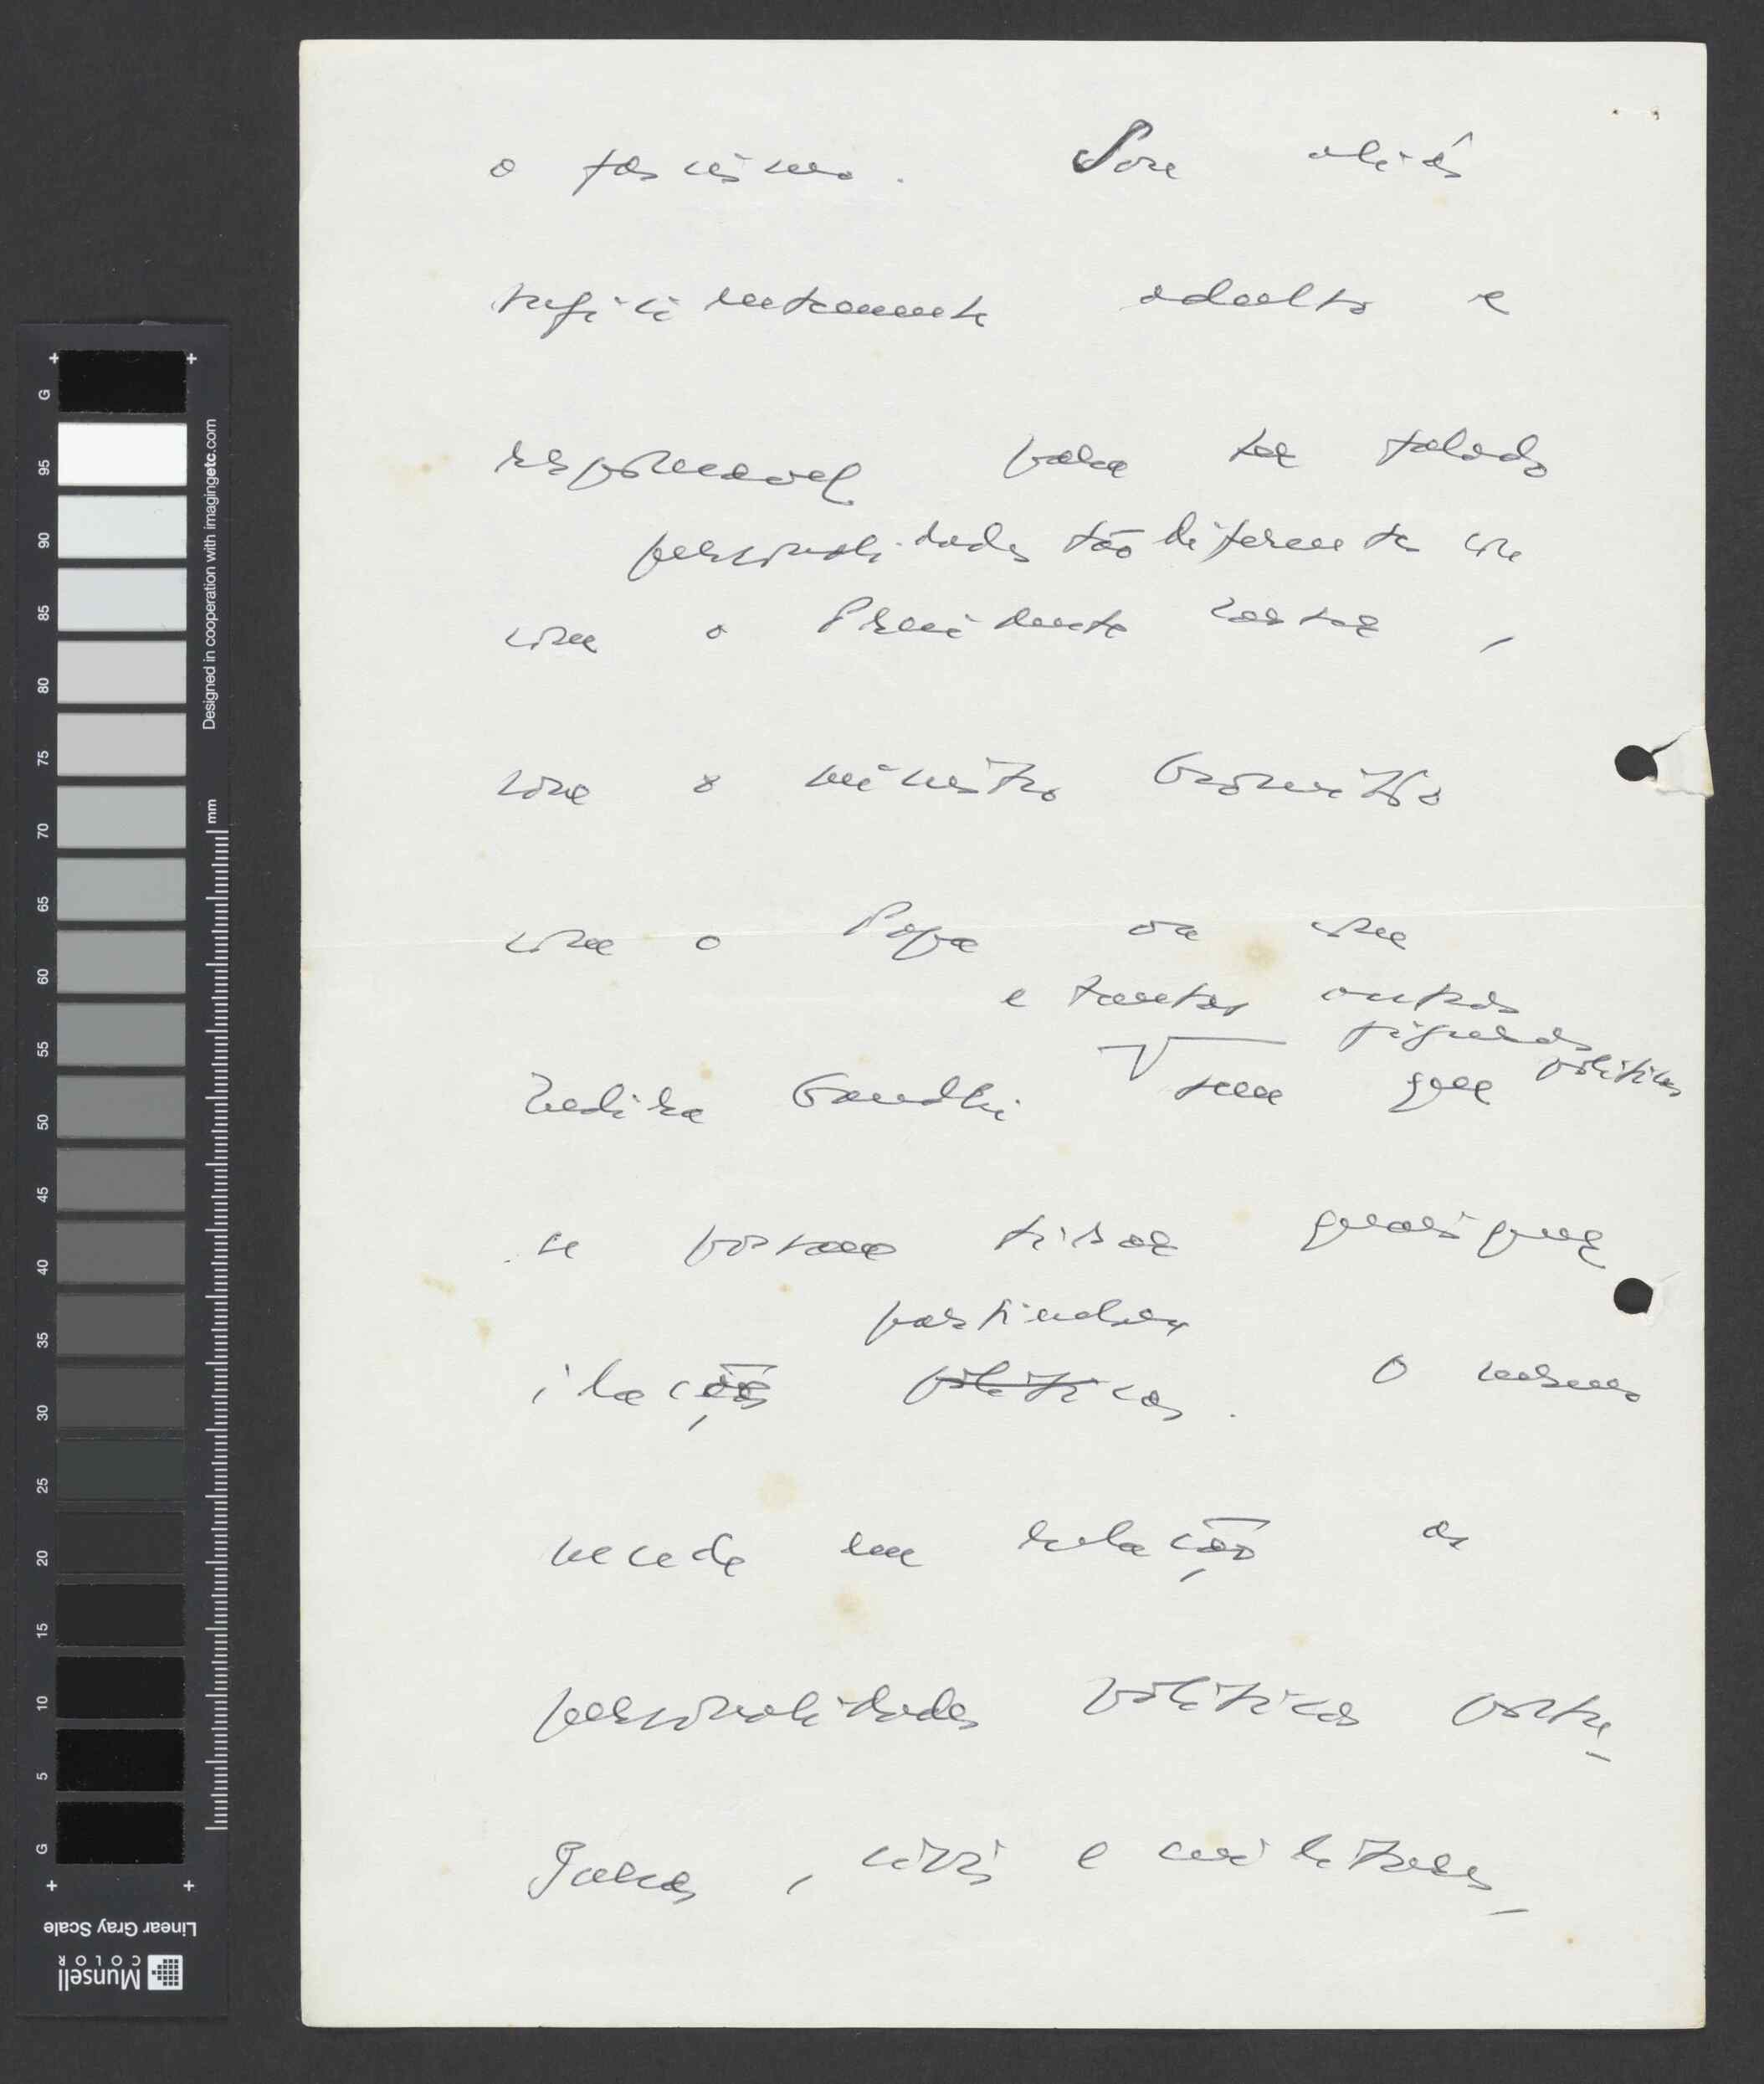 o fascismo. Sou aliás
suficientemente adulto e
responsavel para ter falado
personalidades tão diferentes como
com o Presidente Carter,
com o ministro Gromiko
com o Papa ou com
e tantas outras
figuras
politicas
Indira Gandhi sem que
se possam tirar quaisquer
partindas
ilações politicas. O mesmo
sucede em relação as
personalidades politicas portu-
guesas, civis e militares,
+ +
G
95
90
85
80
75
70
65
60
55
50
45
40
35
30
25
20
15
10
5
G
+ +
mm
Designed in cooperation with imagingetc.com
Linear Gray Scale
Munsell
COLOR